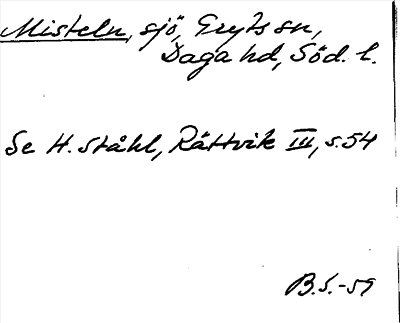 Misteln, sjö, Gryts sn,
Daga hd, Söd. l.
Se H. Ståhl, Rättvik III, s. 54
B.S.-59